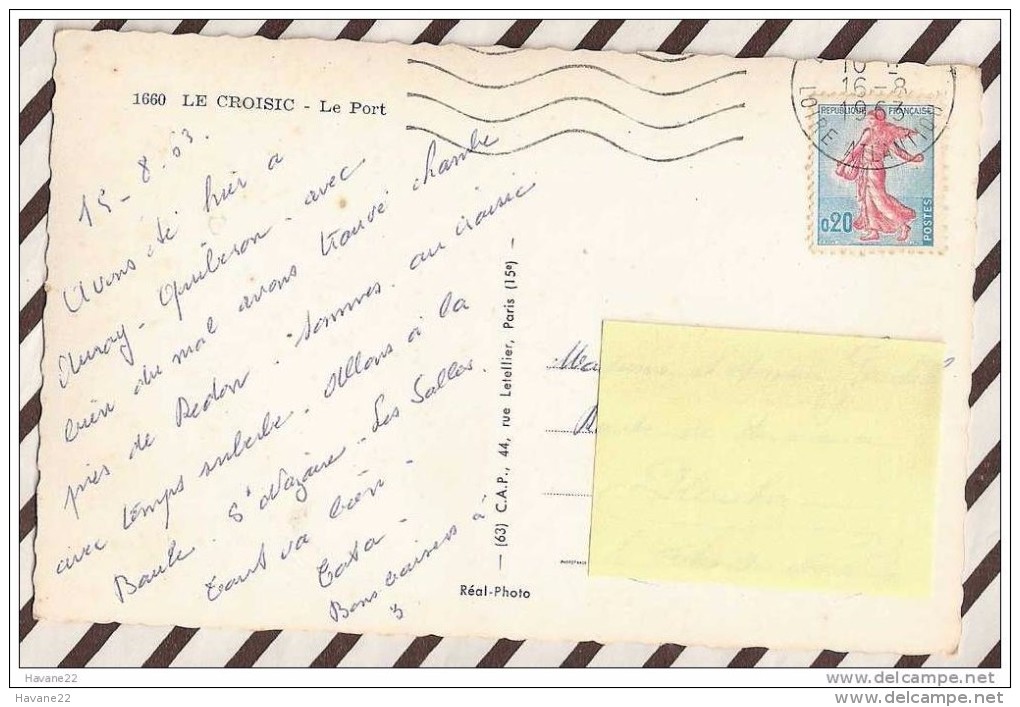 1660 LE CROISIC - Le Port
15-8.63.
Avons été hier a
Auray - Quiberon avec
bien du mal avons trouvé chambre
près de Redon. Sommes au croisic
avec temps superbe. Allons à la
Baule. St Nazaire - Les Salles.
tout va bien.
Tata
Bons baisers à
3
— (63) C.A.P., 44, rue Letellier, Paris (15e) —
Réal-Photo
16-8
1963
LOIRE ATLANTIQUE
REPUBLIQUE FRANÇAISE
0,20
POSTES
Havane22
www.delcampe.net
Havane22
www.delcampe.net